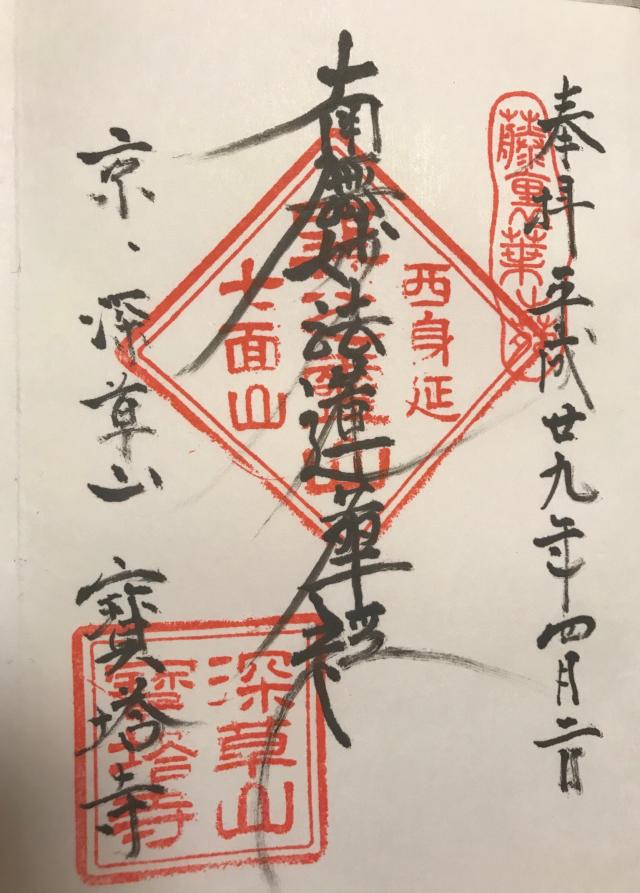 奉拝 平成廿九年四月二日
藤裏葉
南無妙法蓮華経
西身延
七面山
京、深草山 寶塔寺
深草山
寶塔寺